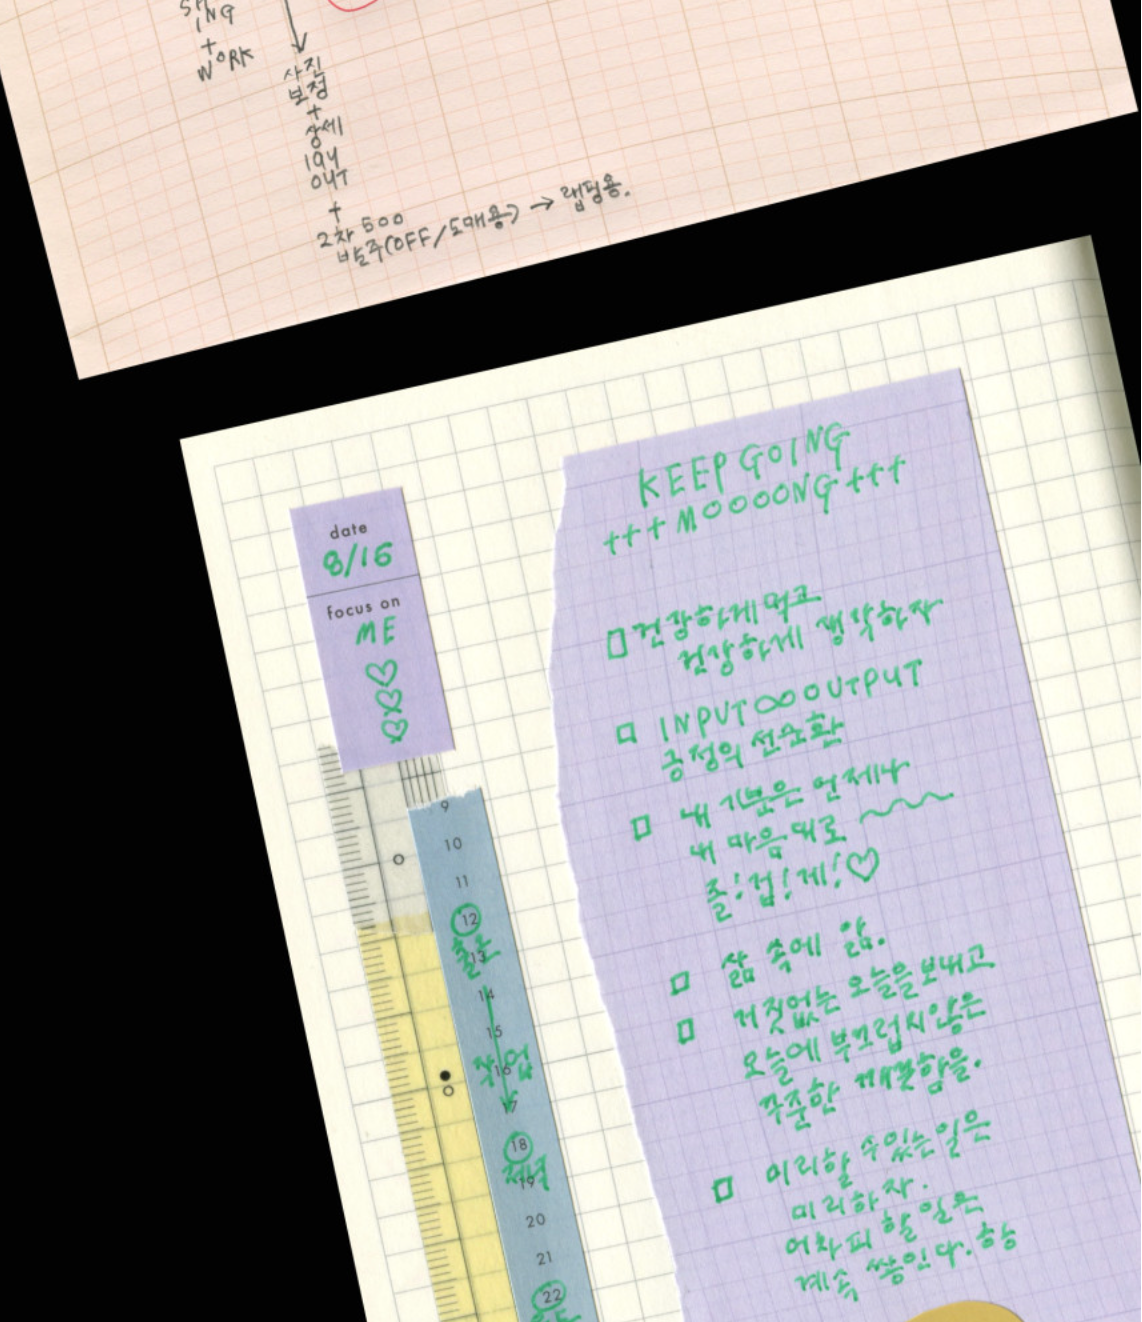 ING
+
WORK
사진
보정
+
상세
lay
out
+
2차 500
발주(OFF/도매용) → 랩핑용.
date
8/15
focus on
ME
♡
♡
♡
KEEP GOING
+++MOOOONG+++
□ 건강하게 먹고
건강하게 생각하자
□ INPUT ∞ OUTPUT
긍정의 선순환
□ 내 기분은 언제나
내 마음 대로
즐! 겁! 게! ♡
□ 삶 속에 앎.
□ 거짓없는 오늘을 보내고
오늘에 부끄럽지않은
꾸준한 깨끗함을.
□ 미리할 수있는일은
미리하자.
어차피 할 일은
계속 쌓인다. 하하
9
10
11
12
출근
13
14
15
작업
16
17
18
저녁
19
20
21
22